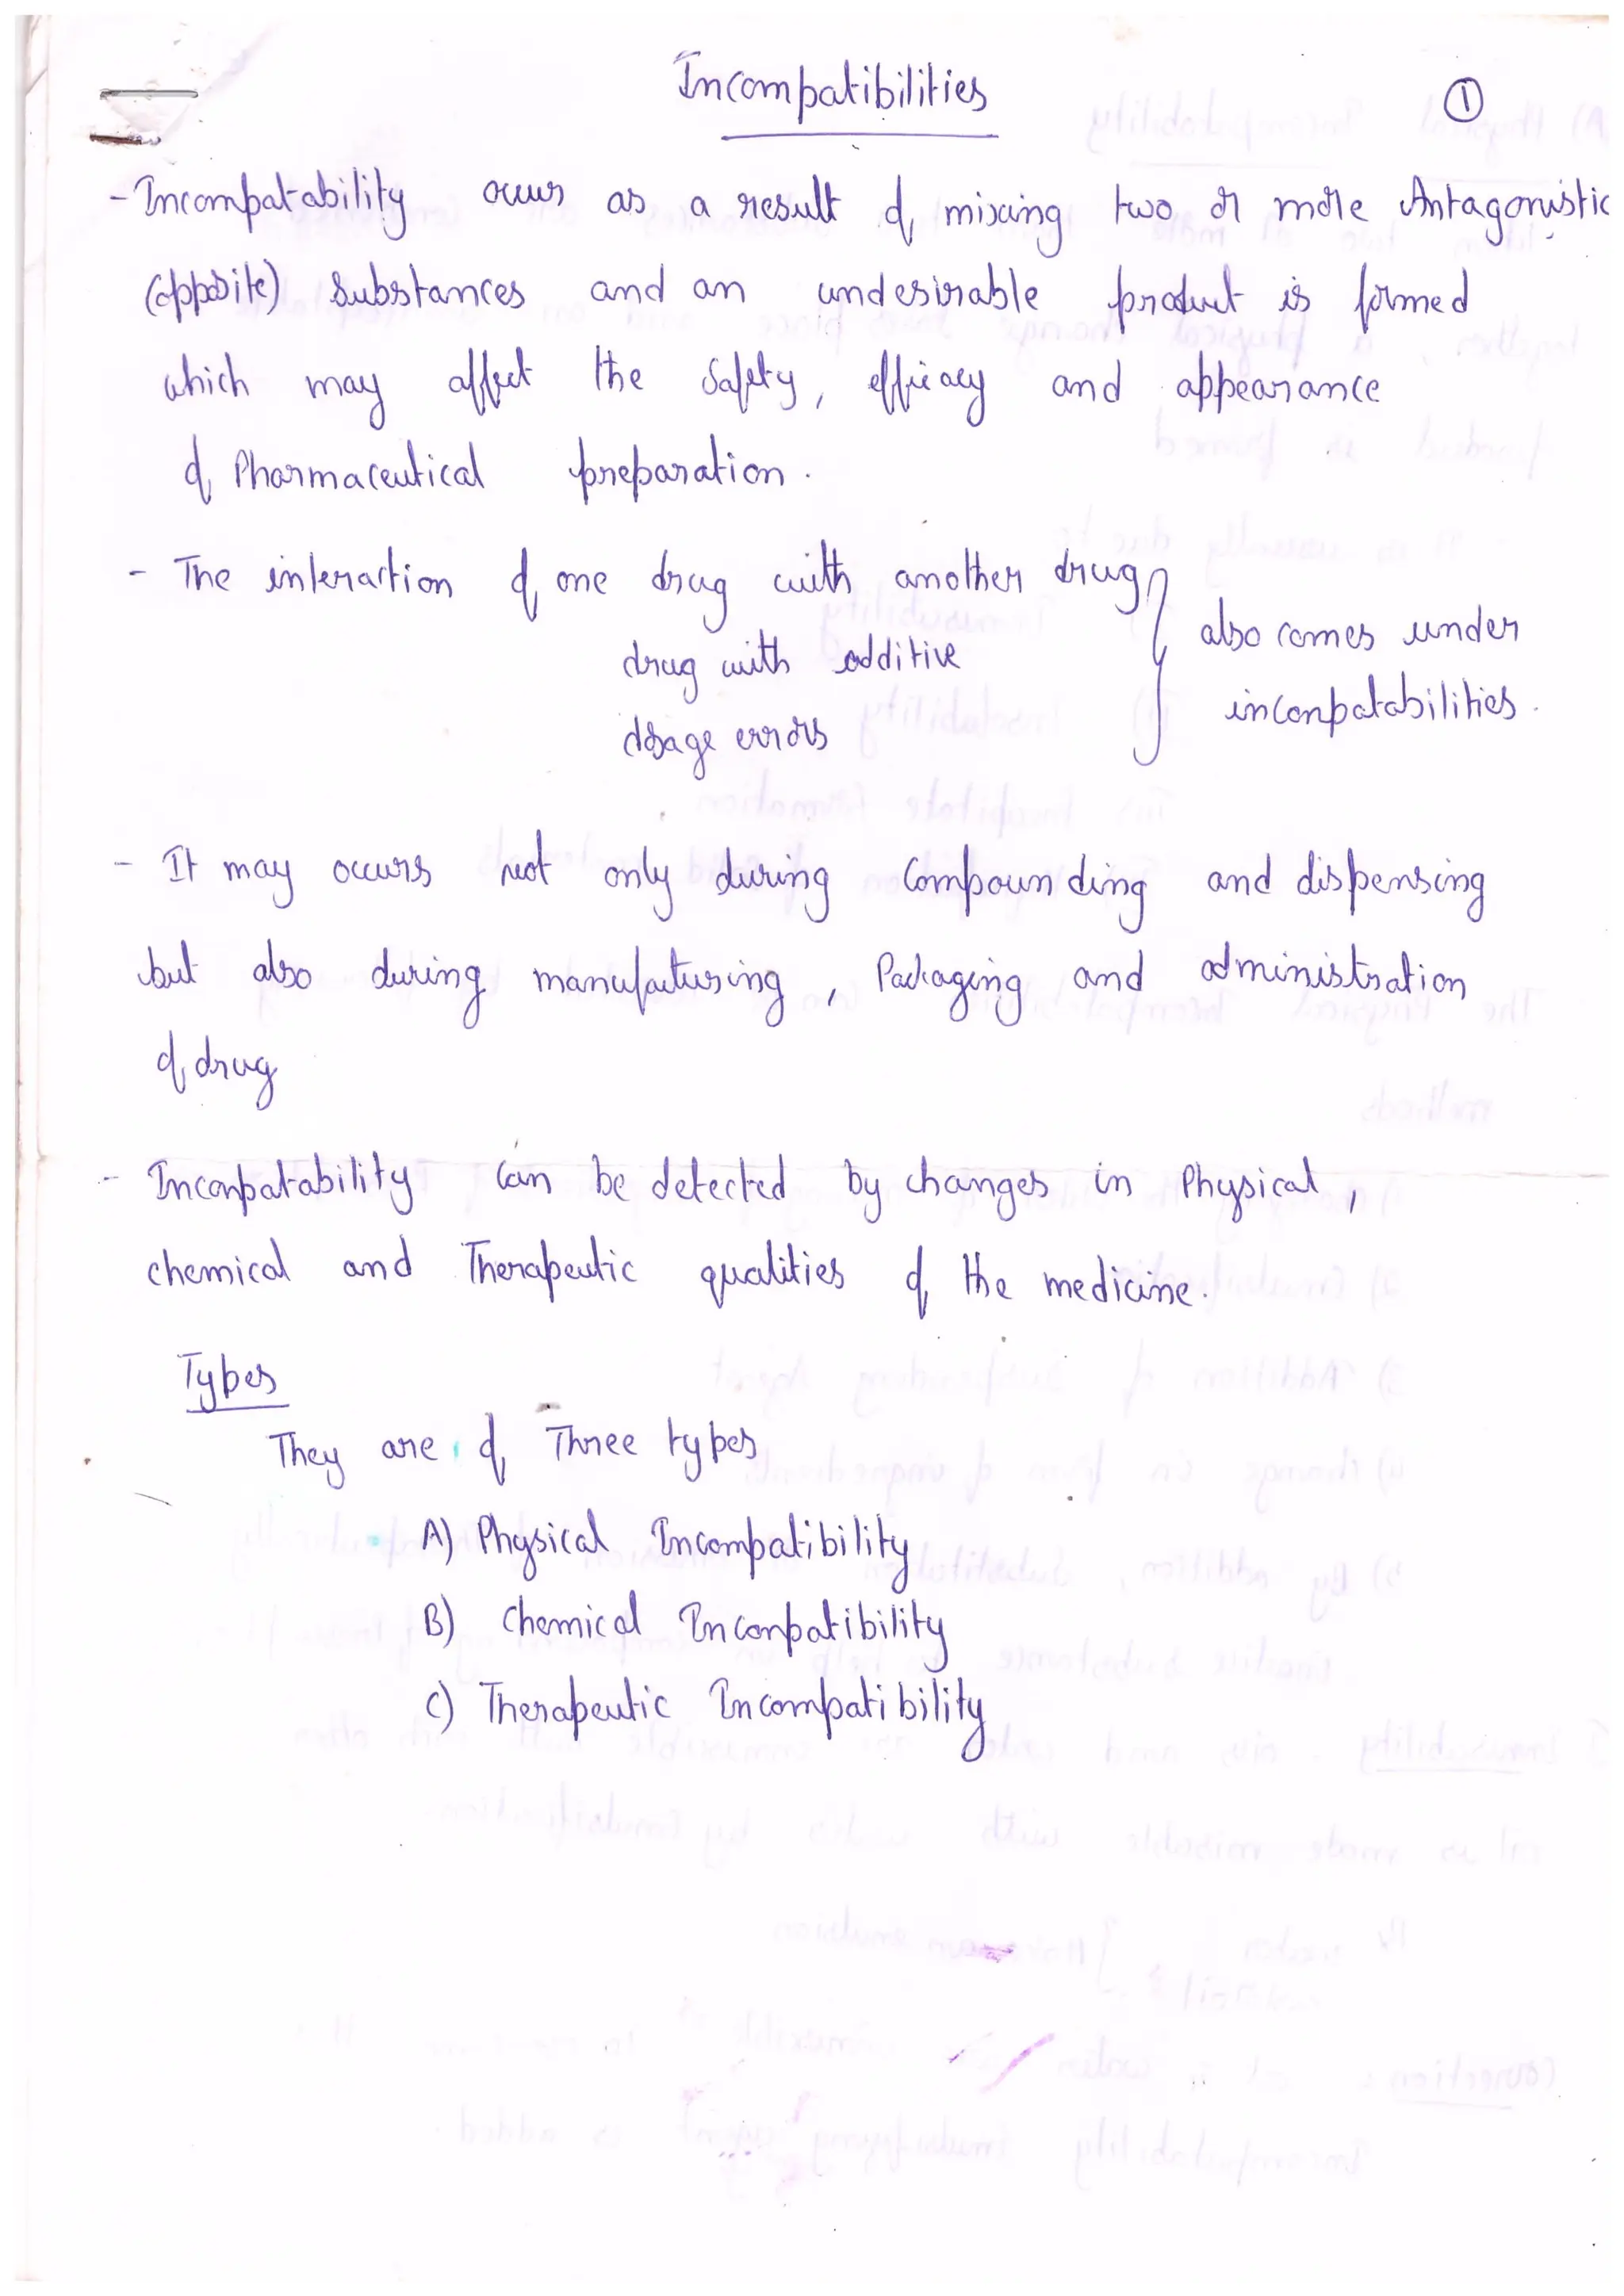 Incompatibilities
①
- Incompatability occurs as a result of mixing two or more Antagonistic
(opposite) Substances and an undesirable product is formed
which may affect the safety, efficacy and appearance
of Pharmaceutical preparation.
- The interaction of one drug with another drug
drug with additive
dosage errors
also comes under
incompatabilities.
- It may occurs not only during Compounding and dispensing
but also during manufacturing, Packaging and administration
of drug
- Incompatability can be detected by changes in Physical,
chemical and Therapeutic qualities of the medicine.
Types
They are of Three types
A) Physical Incompatibility
B) Chemical Incompatibility
C) Therapeutic Incompatibility